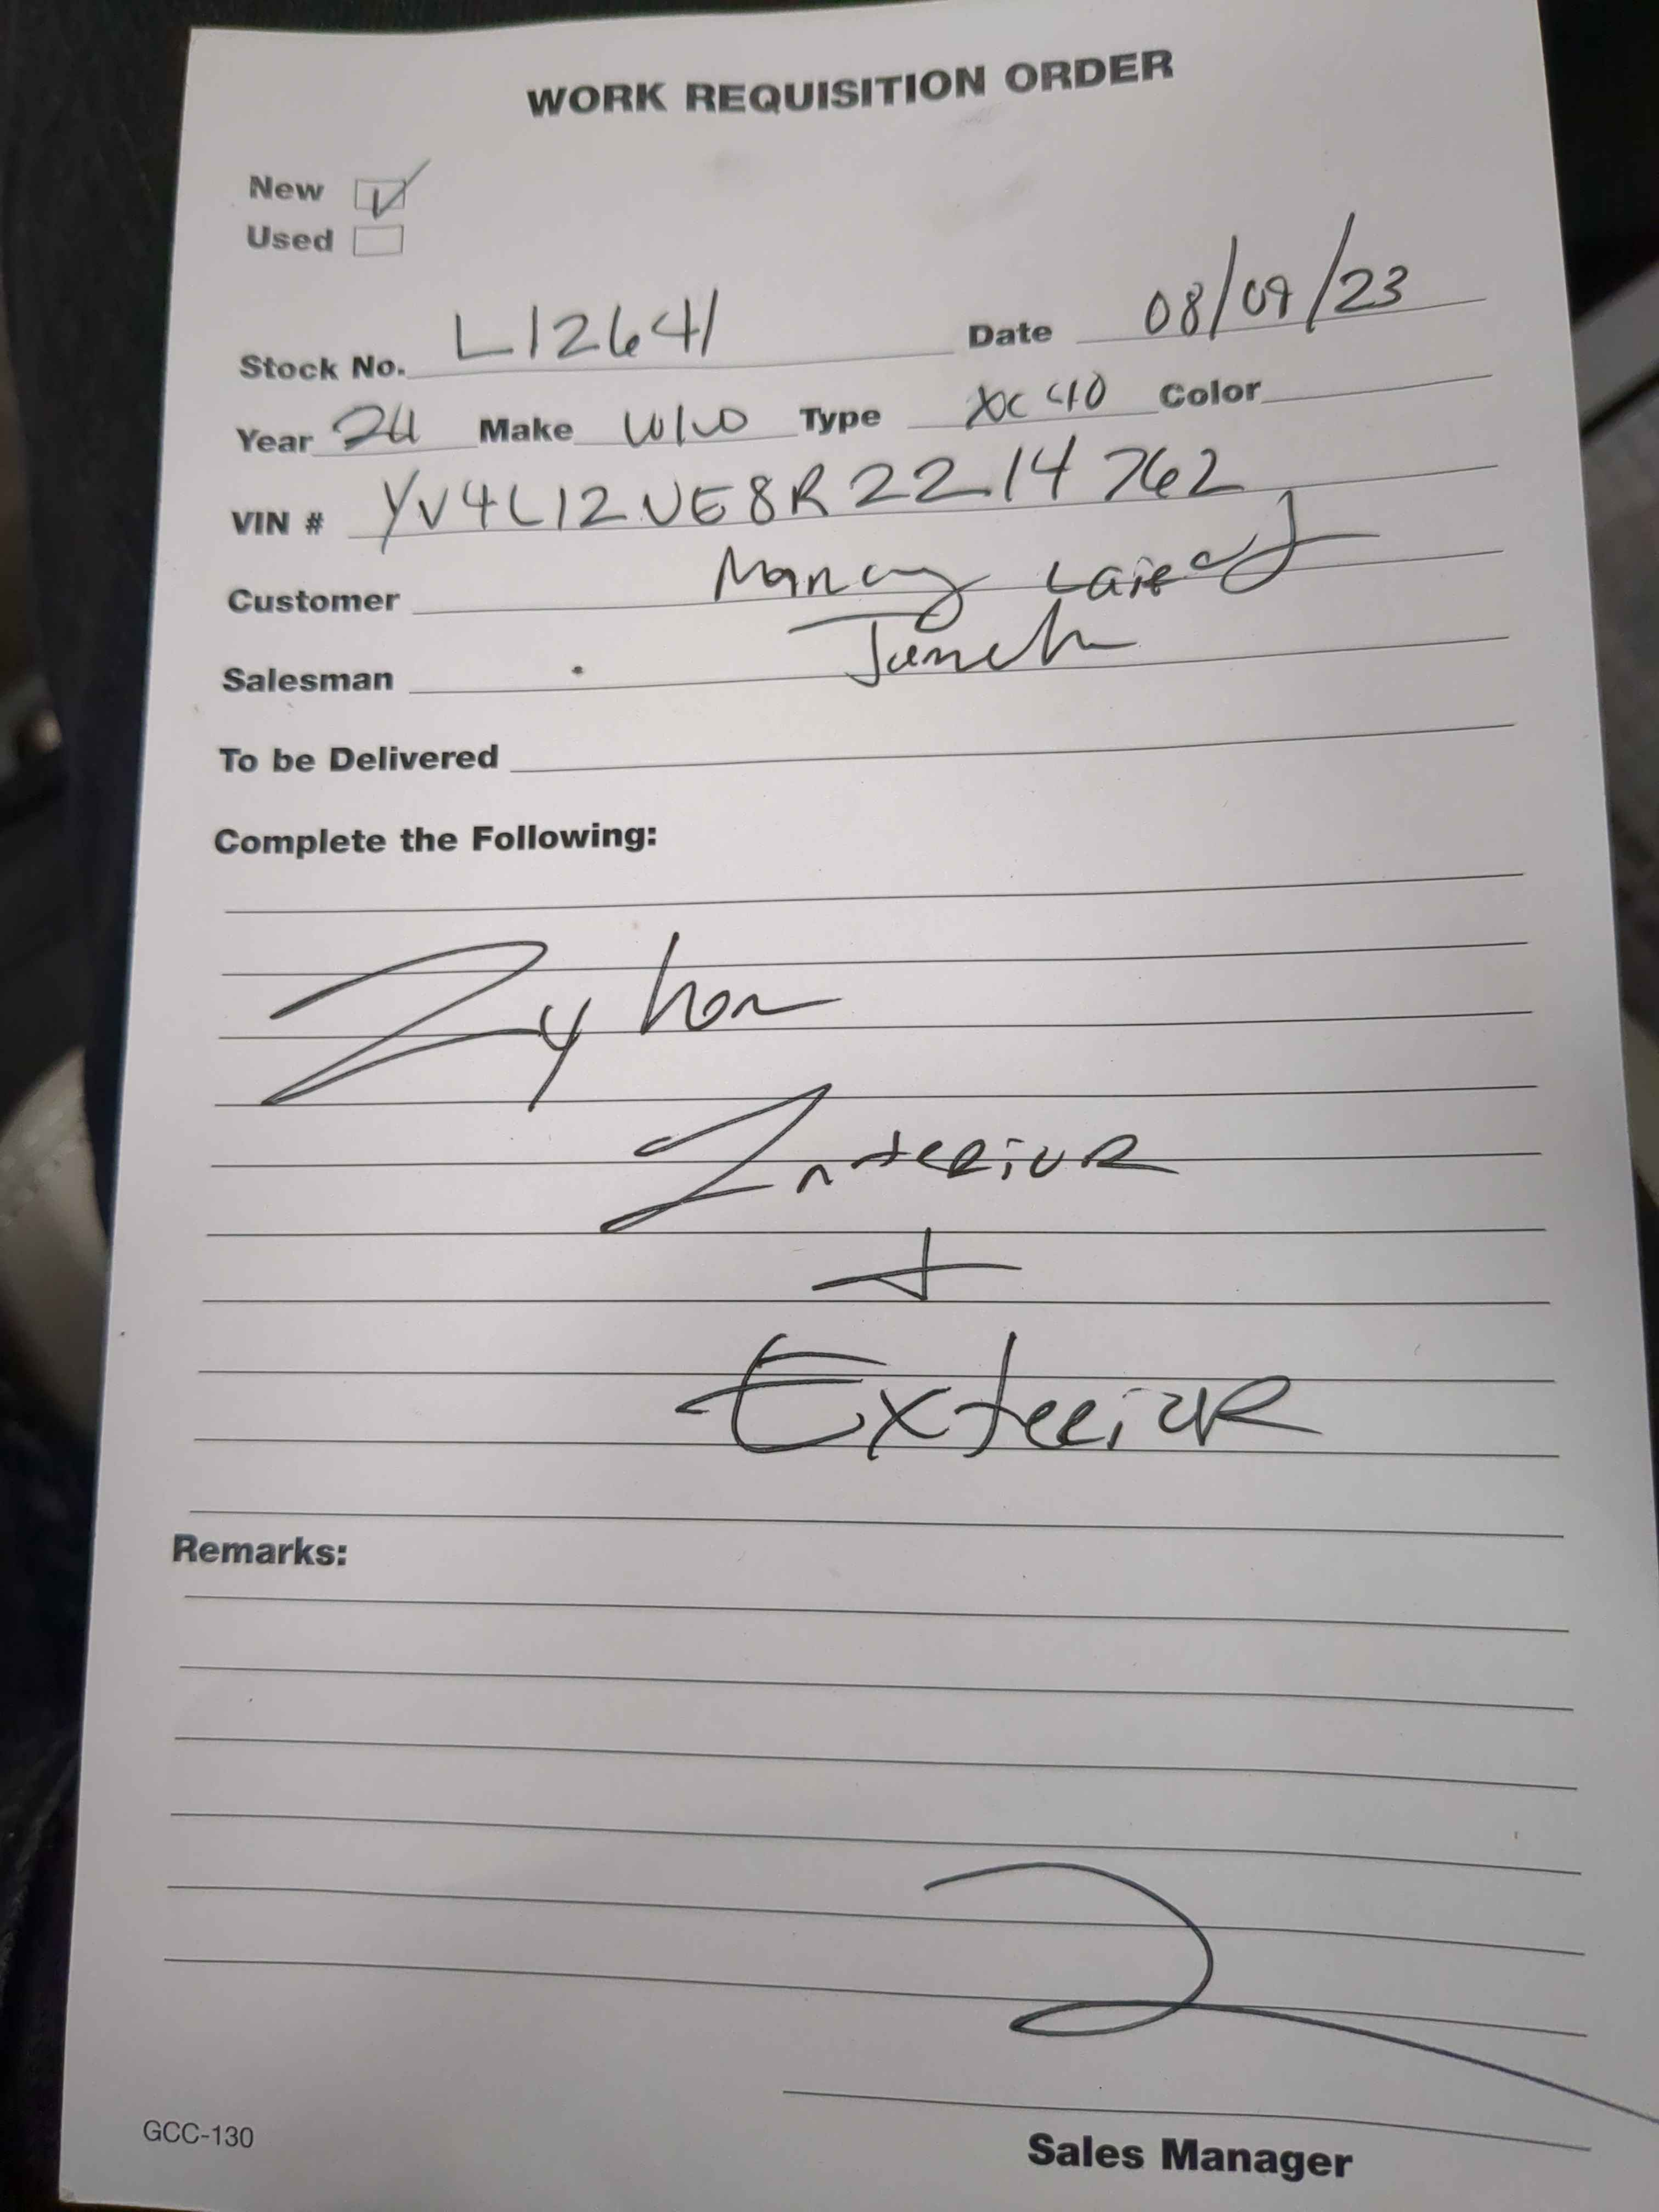 WORK REQUISITION ORDER
New
Used
Stock No. L12641 Date 08/09/23
Year 24 Make Type XC40 Color
VIN # YV4L12UE8R2214762
Customer Nancy
Salesman
To be Delivered
Complete the Following:
Interior
+
Exterior
Remarks:
GCC-130
Sales Manager